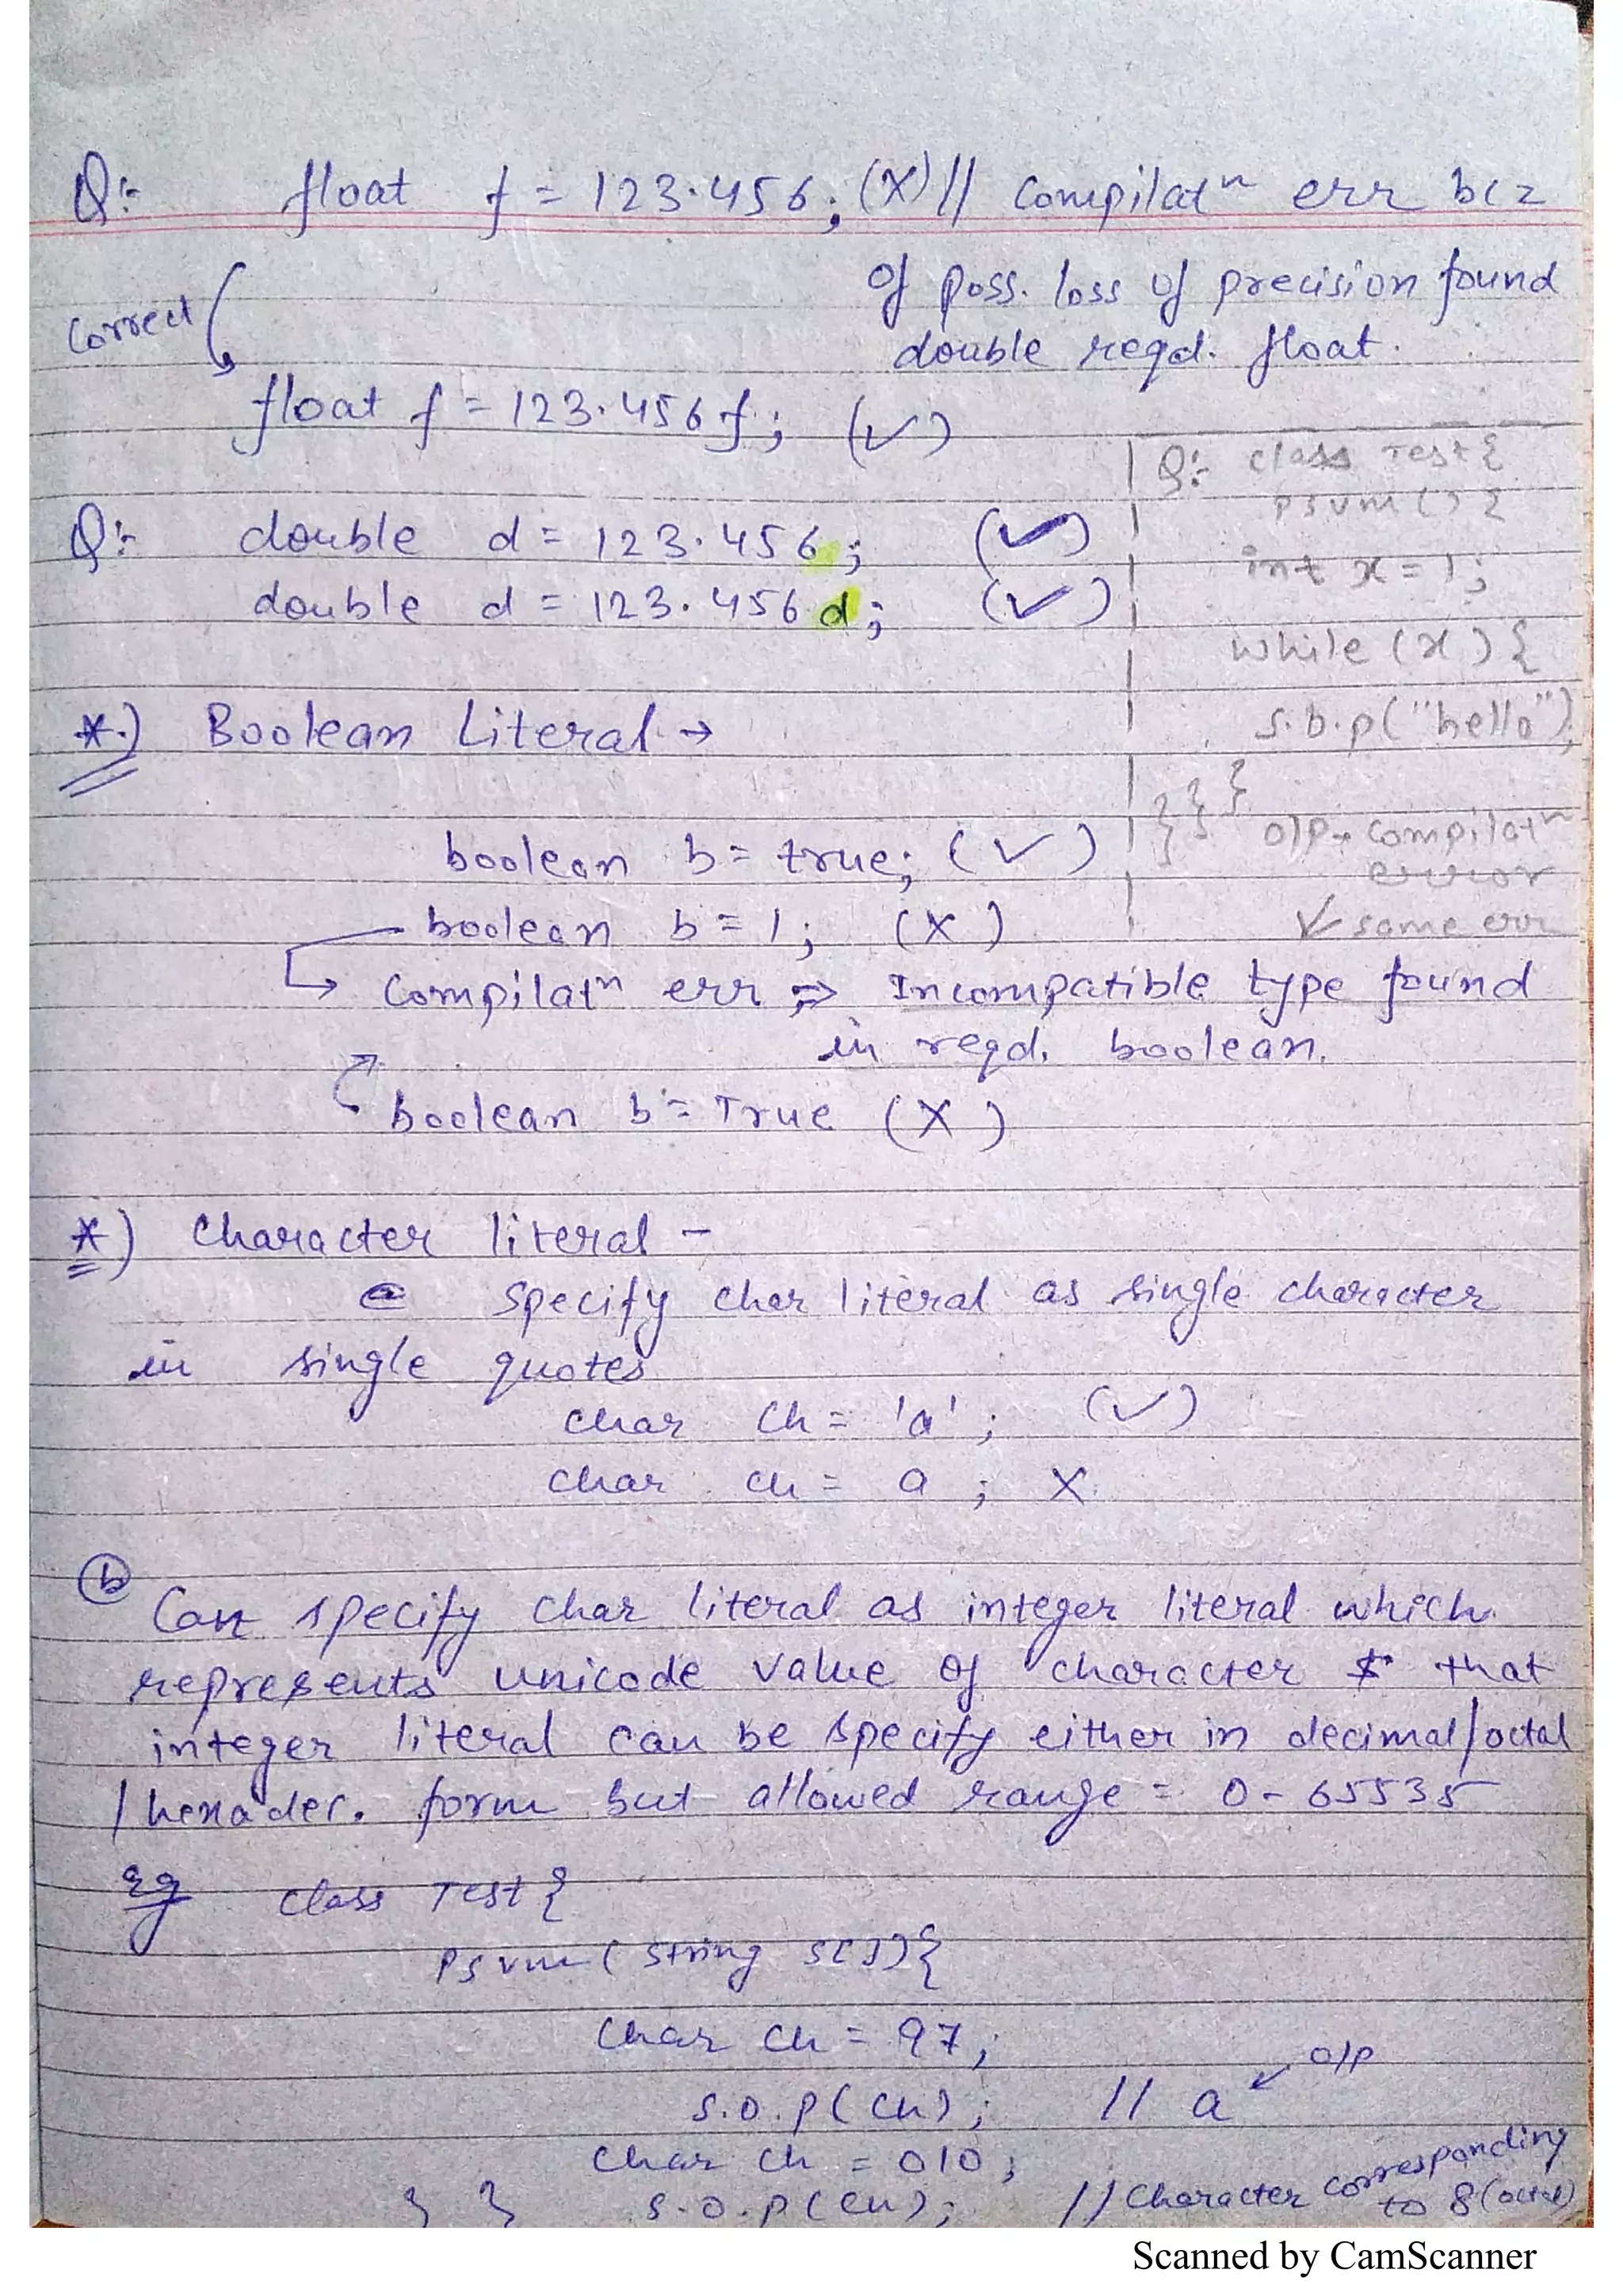 Q:- float f = 123.456; (X) // Compilatn err bcz
of poss. loss of precision found
double reqd. float.
Correct
float f = 123.456f; (✓)
Q:- double d = 123.456; (✓)
double d = 123.456d; (✓)
Q:- class Test{
psvm() {
int x = 1;
while (x) {
s.o.p("hello");
} } }
o/p → Compilatn
error
✓ same err
*.) Boolean Literal →
boolean b = true; (✓)
boolean b = 1; (X)
↳ Compilatn err ⇒ Incompatible type found
in reqd. boolean.
boolean b = True (X)
*) Character literal -
a specify char literal as single character
in single quotes
char ch = 'a'; (✓)
char ch = a ; X
(b) Can specify char literal as integer literal which
represents unicode value of character & that
integer literal can be specify either in decimal/octal
/hexadec. form but allowed range = 0 - 65535
Eg class Test {
psvm (String s[]){
char ch = 97;
s.o.p(ch); // a ← o/p
char ch = 010;
} } s.o.p(ch); // Character corresponding
to 8 (octal)
Scanned by CamScanner